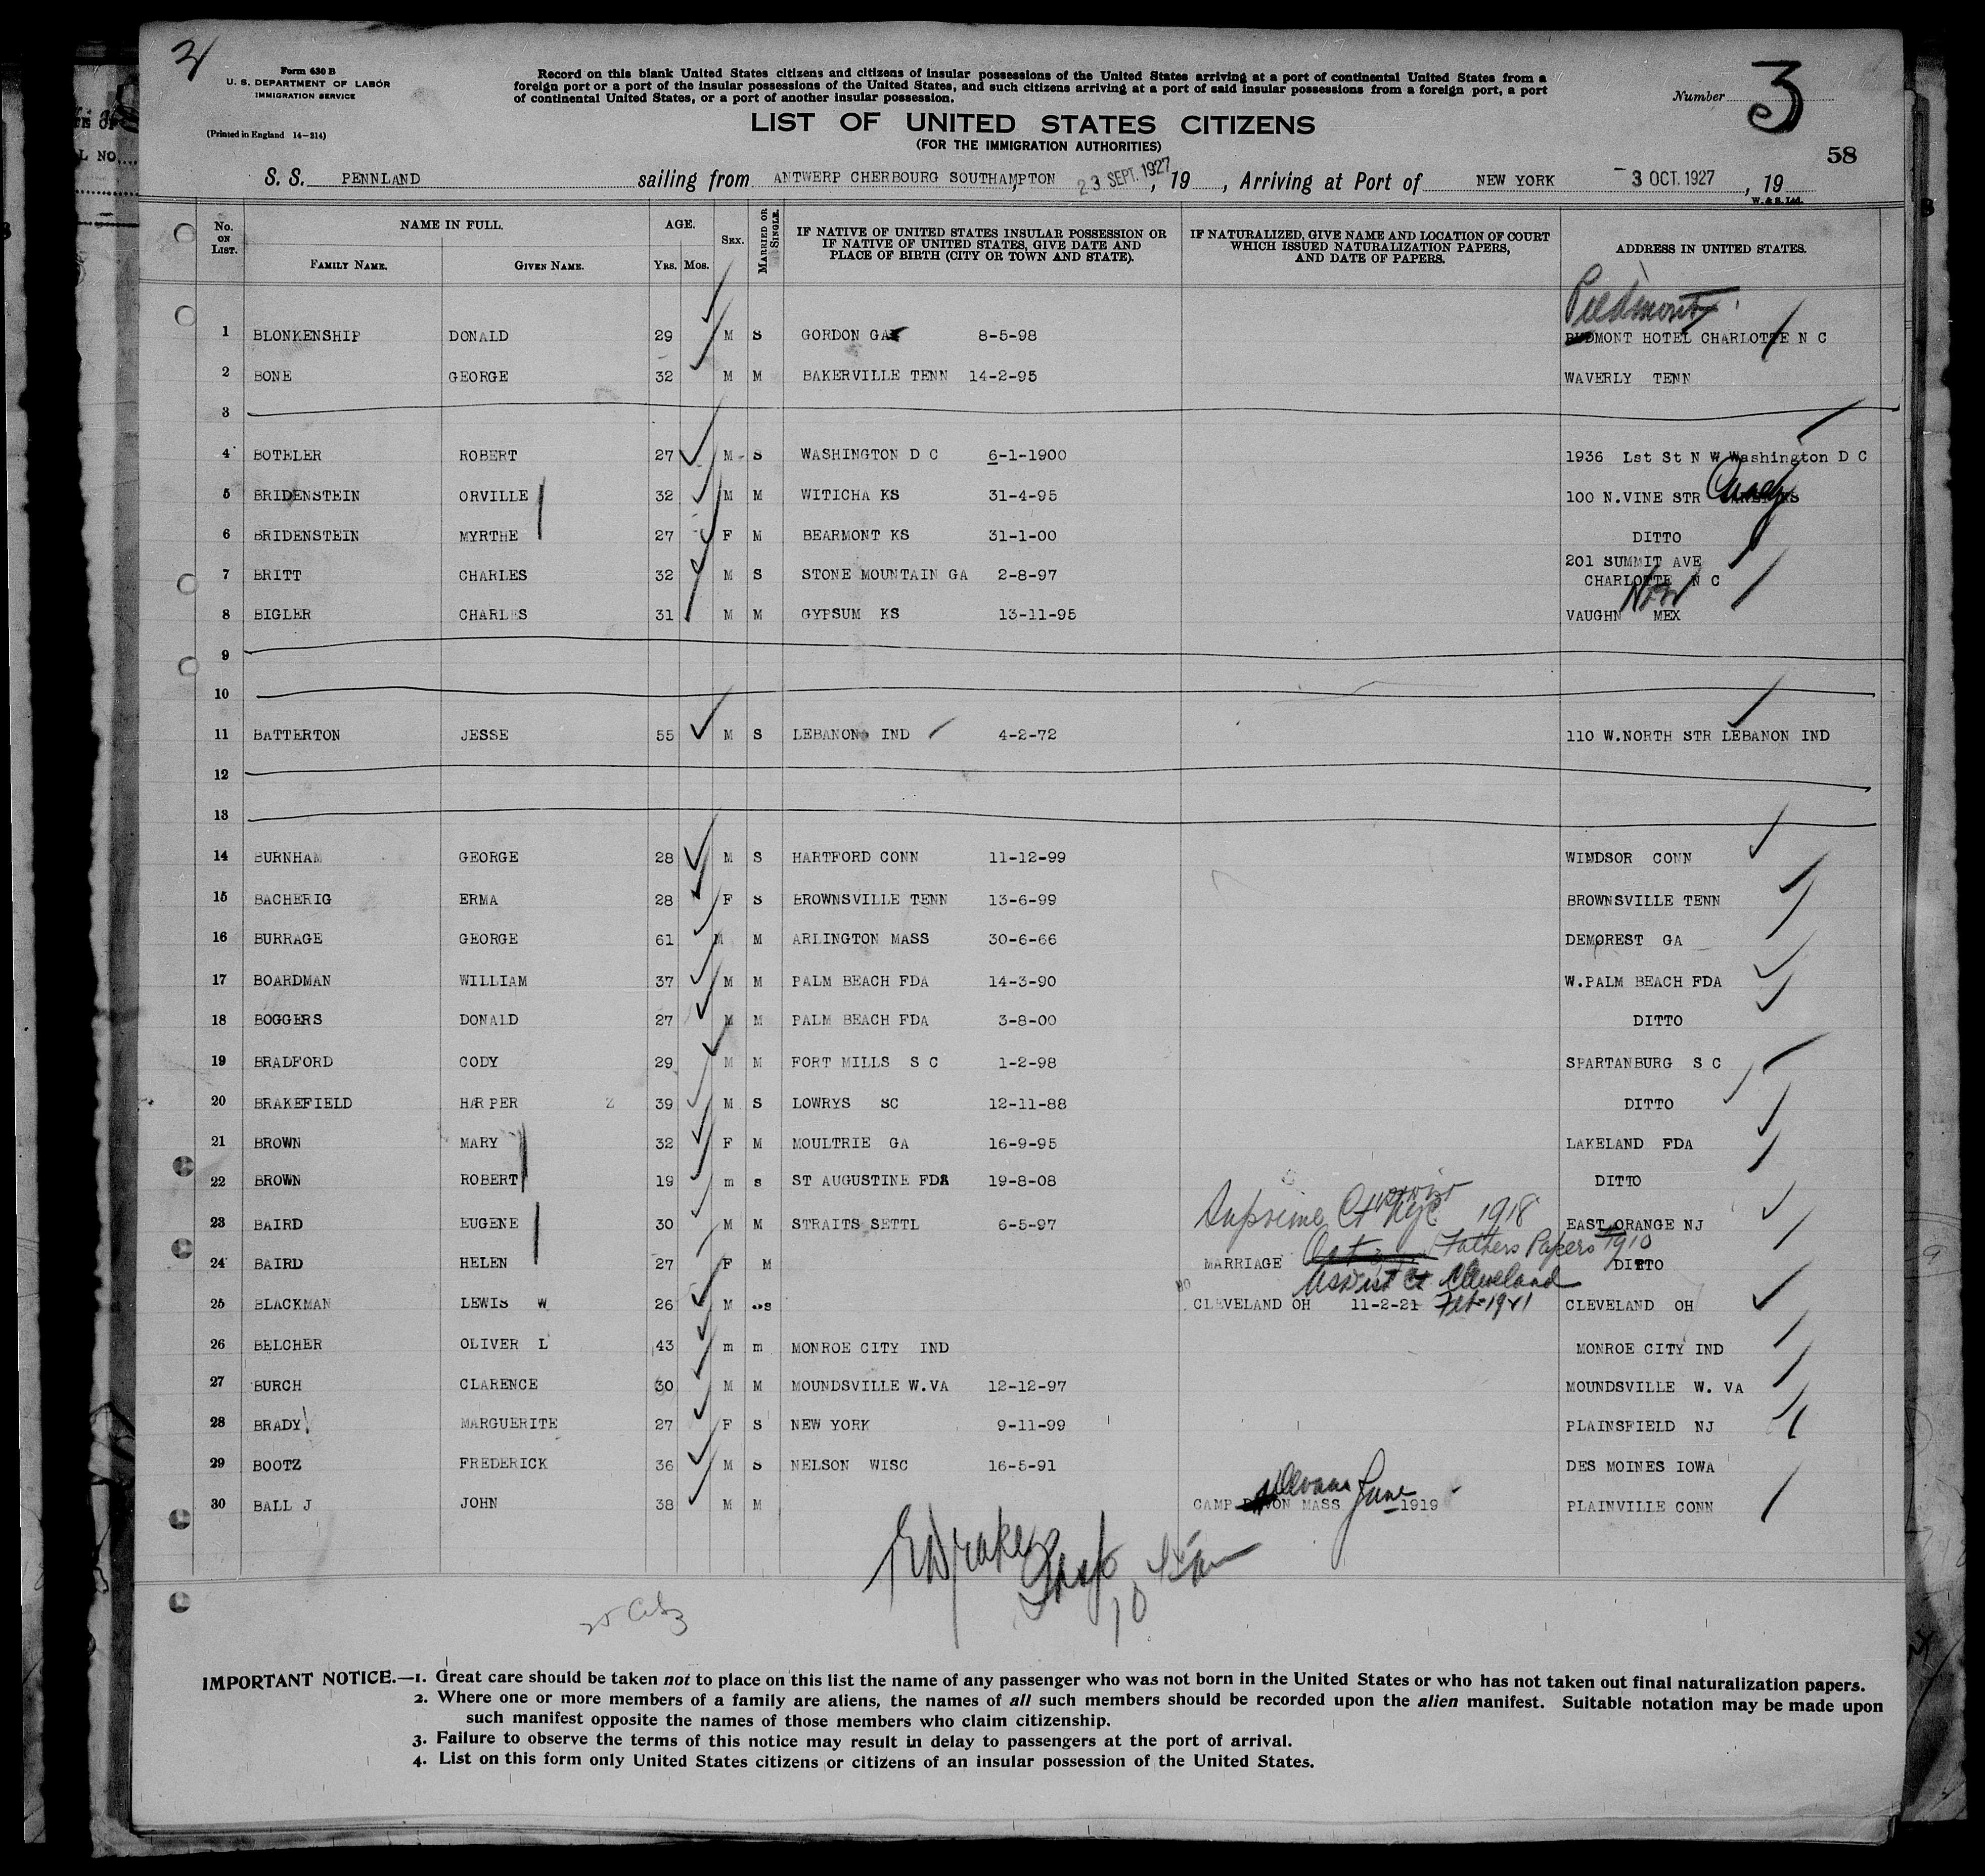 3
Form 630 B
U. S. DEPARTMENT OF LABOR
IMMIGRATION SERVICE
(Printed in England 14-214)
Record on this blank United States citizens and citizens of insular possessions of the United States arriving at a port of continental United States from a
foreign port or a port of the insular possessions of the United States, and such citizens arriving at a port of said insular possessions from a foreign port, a port
of continental United States, or a port of another insular possession.
Number 3
LIST OF UNITED STATES CITIZENS
(FOR THE IMMIGRATION AUTHORITIES)
58
S. S. PENNLAND sailing from ANTWERP CHERBOURG SOUTHAMPTON 23 SEPT. 1927, 19 , Arriving at Port of NEW YORK -3 OCT. 1927, 19
W. & S. Ltd.
No. ON LIST. NAME IN FULL. FAMILY NAME. GIVEN NAME. AGE. YRS. MOS. SEX. MARRIED OR SINGLE. IF NATIVE OF UNITED STATES INSULAR POSSESSION OR IF NATIVE OF UNITED STATES, GIVE DATE AND PLACE OF BIRTH (CITY OR TOWN AND STATE). IF NATURALIZED, GIVE NAME AND LOCATION OF COURT WHICH ISSUED NATURALIZATION PAPERS, AND DATE OF PAPERS. ADDRESS IN UNITED STATES.
Piedmont
1 BLONKENSHIP DONALD 29 M S GORDON GA 8-5-98 PUDMONT HOTEL CHARLOTTE N C
2 BONE GEORGE 32 M M BAKERVILLE TENN 14-2-95 WAVERLY TENN
3
4 BOTELER ROBERT 27 M S WASHINGTON D C 6-1-1900 1936 Lst St N W Washington D C
5 BRIDENSTEIN ORVILLE 32 M M WITICHA KS 31-4-95 100 N.VINE STR
6 BRIDENSTEIN MYRTHE 27 F M BEARMONT KS 31-1-00 DITTO
7 BRITT CHARLES 32 M S STONE MOUNTAIN GA 2-8-97 201 SUMMIT AVE
CHARLOTTE N C
8 BIGLER CHARLES 31 M M GYPSUM KS 13-11-95 VAUGHN New MEX
9
10
11 BATTERTON JESSE 55 M S LEBANON IND 4-2-72 110 W.NORTH STR LEBANON IND
12
13
14 BURNHAM GEORGE 28 M S HARTFORD CONN 11-12-99 WINDSOR CONN
15 BACHERIG ERMA 28 F S BROWNSVILLE TENN 13-6-99 BROWNSVILLE TENN
16 BURRAGE GEORGE 61 M M ARLINGTON MASS 30-6-66 DEMOREST GA
17 BOARDMAN WILLIAM 37 M M PALM BEACH FDA 14-3-90 W.PALM BEACH FDA
18 BOGGERS DONALD 27 M M PALM BEACH FDA 3-8-00 DITTO
19 BRADFORD CODY 29 M M FORT MILLS S C 1-2-98 SPARTANBURG S C
20 BRAKEFIELD HARPER Z 39 M S LOWRYS SC 12-11-88 DITTO
21 BROWN MARY 32 F M MOULTRIE GA 16-9-95 LAKELAND FDA
22 BROWN ROBERT 19 m s ST AUGUSTINE FDA 19-8-08 DITTO
23 BAIRD EUGENE 30 M M STRAITS SETTL 6-5-97 Supreme Ct NYC 1918 EAST ORANGE NJ
24 BAIRD HELEN 27 F M MARRIAGE Fathers Papers 1910 DITTO
Cleveland
25 BLACKMAN LEWIS W 26 M S CLEVELAND OH 11-2-21 Feb-1921 CLEVELAND OH
26 BELCHER OLIVER L 43 m m MONROE CITY IND MONROE CITY IND
27 BURCH CLARENCE 30 M M MOUNDSVILLE W.VA 12-12-97 MOUNDSVILLE W. VA
28 BRADY MARGUERITE 27 F S NEW YORK 9-11-99 PLAINSFIELD NJ
29 BOOTZ FREDERICK 36 M S NELSON WISC 16-5-91 DES MOINES IOWA
30 BALL J JOHN 38 M M CAMP Devans MASS June 1919 PLAINVILLE CONN
IMPORTANT NOTICE.—1. Great care should be taken not to place on this list the name of any passenger who was not born in the United States or who has not taken out final naturalization papers.
2. Where one or more members of a family are aliens, the names of all such members should be recorded upon the alien manifest. Suitable notation may be made upon
such manifest opposite the names of those members who claim citizenship.
3. Failure to observe the terms of this notice may result in delay to passengers at the port of arrival.
4. List on this form only United States citizens or citizens of an insular possession of the United States.